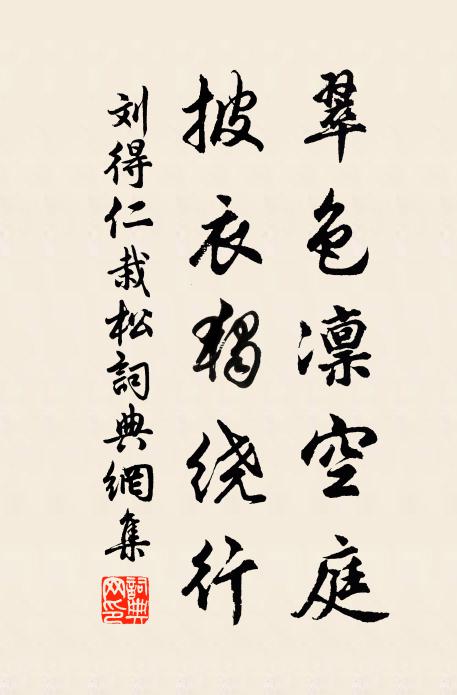 翠色凛空庭
披衣独绕行
刘得仁栽松詞典網集
詞典网印